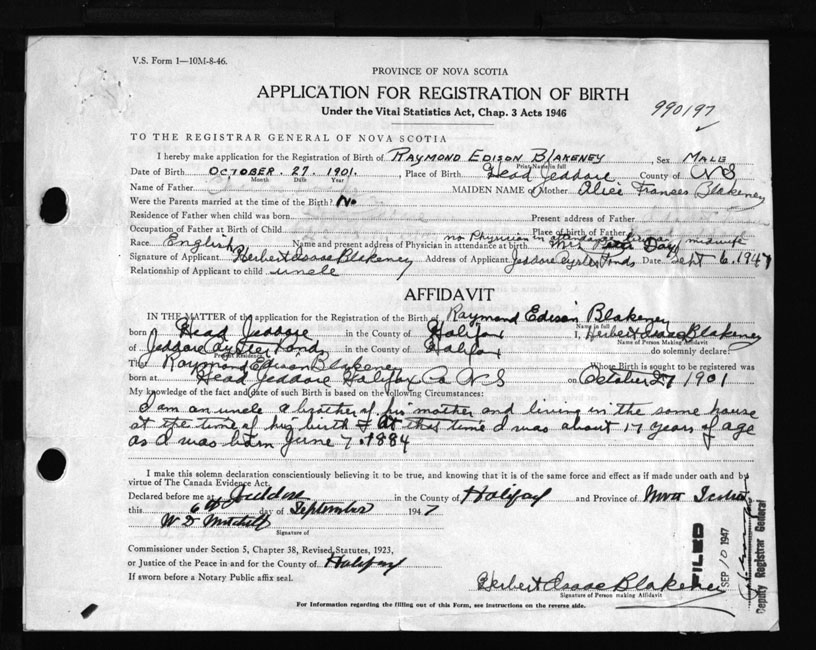 V.S. Form 1—10M-8-46.
PROVINCE OF NOVA SCOTIA
APPLICATION FOR REGISTRATION OF BIRTH
Under the Vital Statistics Act, Chap. 3 Acts 1946
990197
TO THE REGISTRAR GENERAL OF NOVA SCOTIA
I hereby make application for the Registration of Birth of RAYMOND EDISON BLAKENEY, Sex MALE
Print Name in full
Date of Birth OCTOBER. 27. 1901. Place of Birth Head Jeddore County of NS
Month Date Year
Name of Father MAIDEN NAME of Mother Alice Frances Blakeney
Were the Parents married at the time of the Birth? No
Residence of Father when child was born Present address of Father
Occupation of Father at Birth of Child Place of birth of Father
no Physician in attendance midwife
Race English Name and present address of Physician in attendance at birth Mrs Day
Signature of Applicant Herbert Isaac Blakeney Address of Applicant Jeddore Oyster Ponds Date Sept 6, 1947
Relationship of Applicant to child uncle
AFFIDAVIT
IN THE MATTER of the application for the Registration of the Birth of Raymond Edison Blakeney
Name in full
born Head Jeddore in the County of Halifax I, Herbert Isaac Blakeney
Name of Person Making Affidavit
of Jeddore Oyster Ponds in the County of Halifax do solemnly declare:
Present Residence
Raymond Edison Blakeney Whose Birth is sought to be registered was
born at Head Jeddore Halifax Co NS on October 27 1901
My knowledge of the fact and date of such Birth is based on the following Circumstances:
I am an uncle a brother of his mother and living in the same house
at the time of his birth & at that time I was about 17 years of age
as I was born June 7. 1884
I make this solemn declaration conscientiously believing it to be true, and knowing that it is of the same force and effect as if made under oath and by
virtue of The Canada Evidence Act.
Declared before me at Jeddore in the County of Halifax and Province of Nova Scotia
this 6th day of September 1947
W D Mitchell
Signature of
Commissioner under Section 5, Chapter 38, Revised Statutes, 1923,
or Justice of the Peace in and for the County of Halifax
If sworn before a Notary Public affix seal.
Herbert Isaac Blakeney
Signature of Person making Affidavit
FILED
SEP 10 1947
Deputy Registrar General
For Information regarding the filling out of this Form, see instructions on the reverse side.